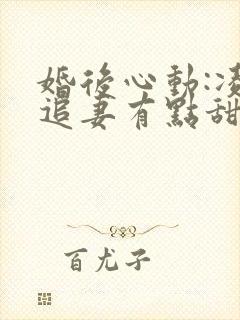 婚後心動:凌
追妻有點甜
百尤子